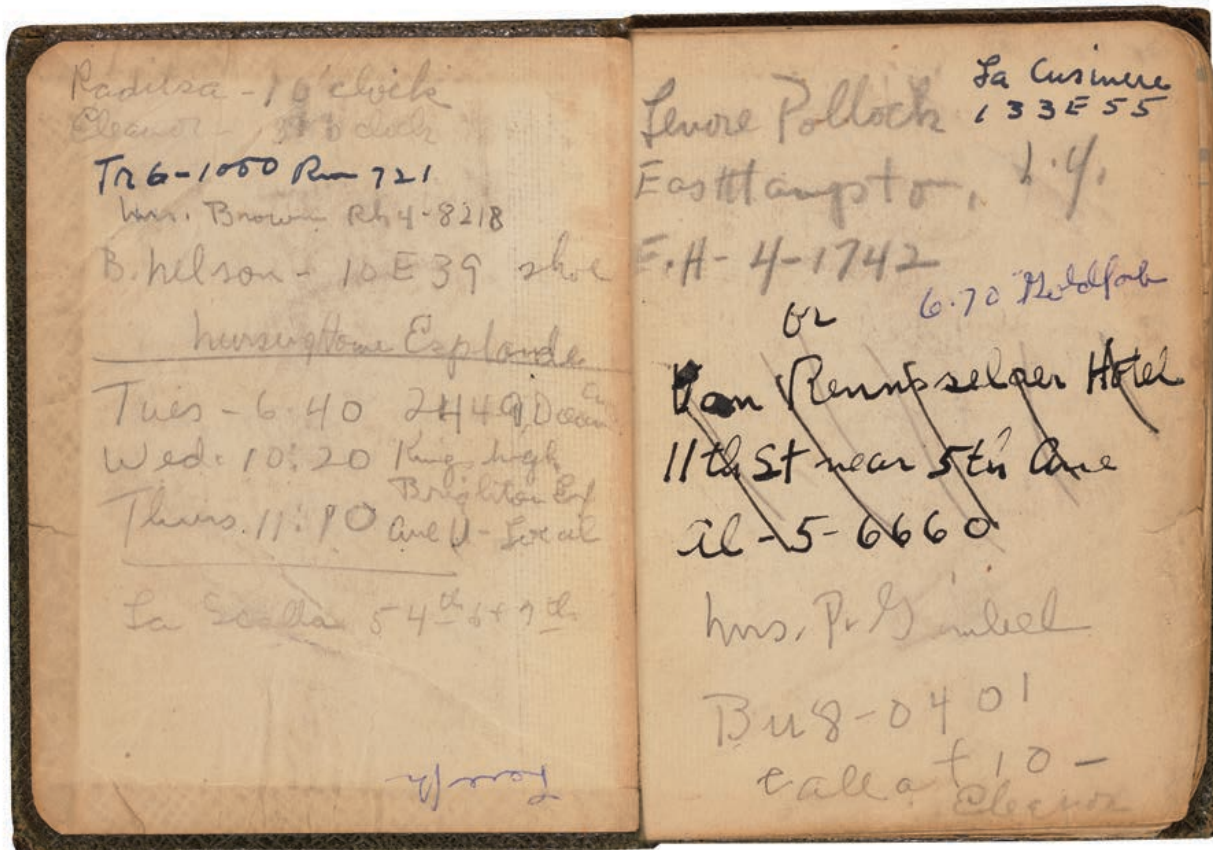 Raditsa - 1 o'clock
Eleanor - o'clock
TR 6-1000 Rm 721
Mrs. Brown Rh 4-8218
B. Nelson - 10 E 39 shoe
Nursing Home Esplande
Tues - 6:40 2449 Ocean
Wed: 10:20 Kings high
Brighton Exp
Thurs. 11:10 Ave U - Local
La Scalla 54th 6 + 7th
Joseph
La Cusinere
133 E 55
Lenore Pollock
EastHampton, N.Y.
E.H- 4-1742
6.70 Goldfarb
or
Van Rennsselaer Hotel
11th St near 5th Ave
Al-5-6660
Mrs. P. Gimbel
Bu 8-0401
call at 10 -
Eleanor